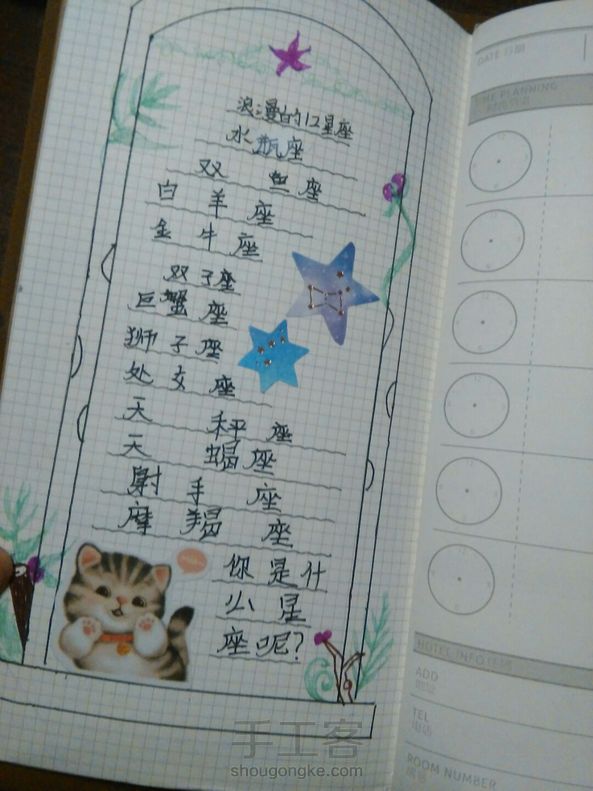 浪漫的12星座
水瓶座
双鱼座
白羊座
金牛座
双子座
巨蟹座
狮子座
处女座
天秤座
天蝎座
射手座
摩羯座
你是什
么星
座呢?
DATE 日期
TIME PLANNING
HOTEL INFO 住宿
ADD
地址
TEL
电话
ROOM NUMBER
手工客
shougongke.com